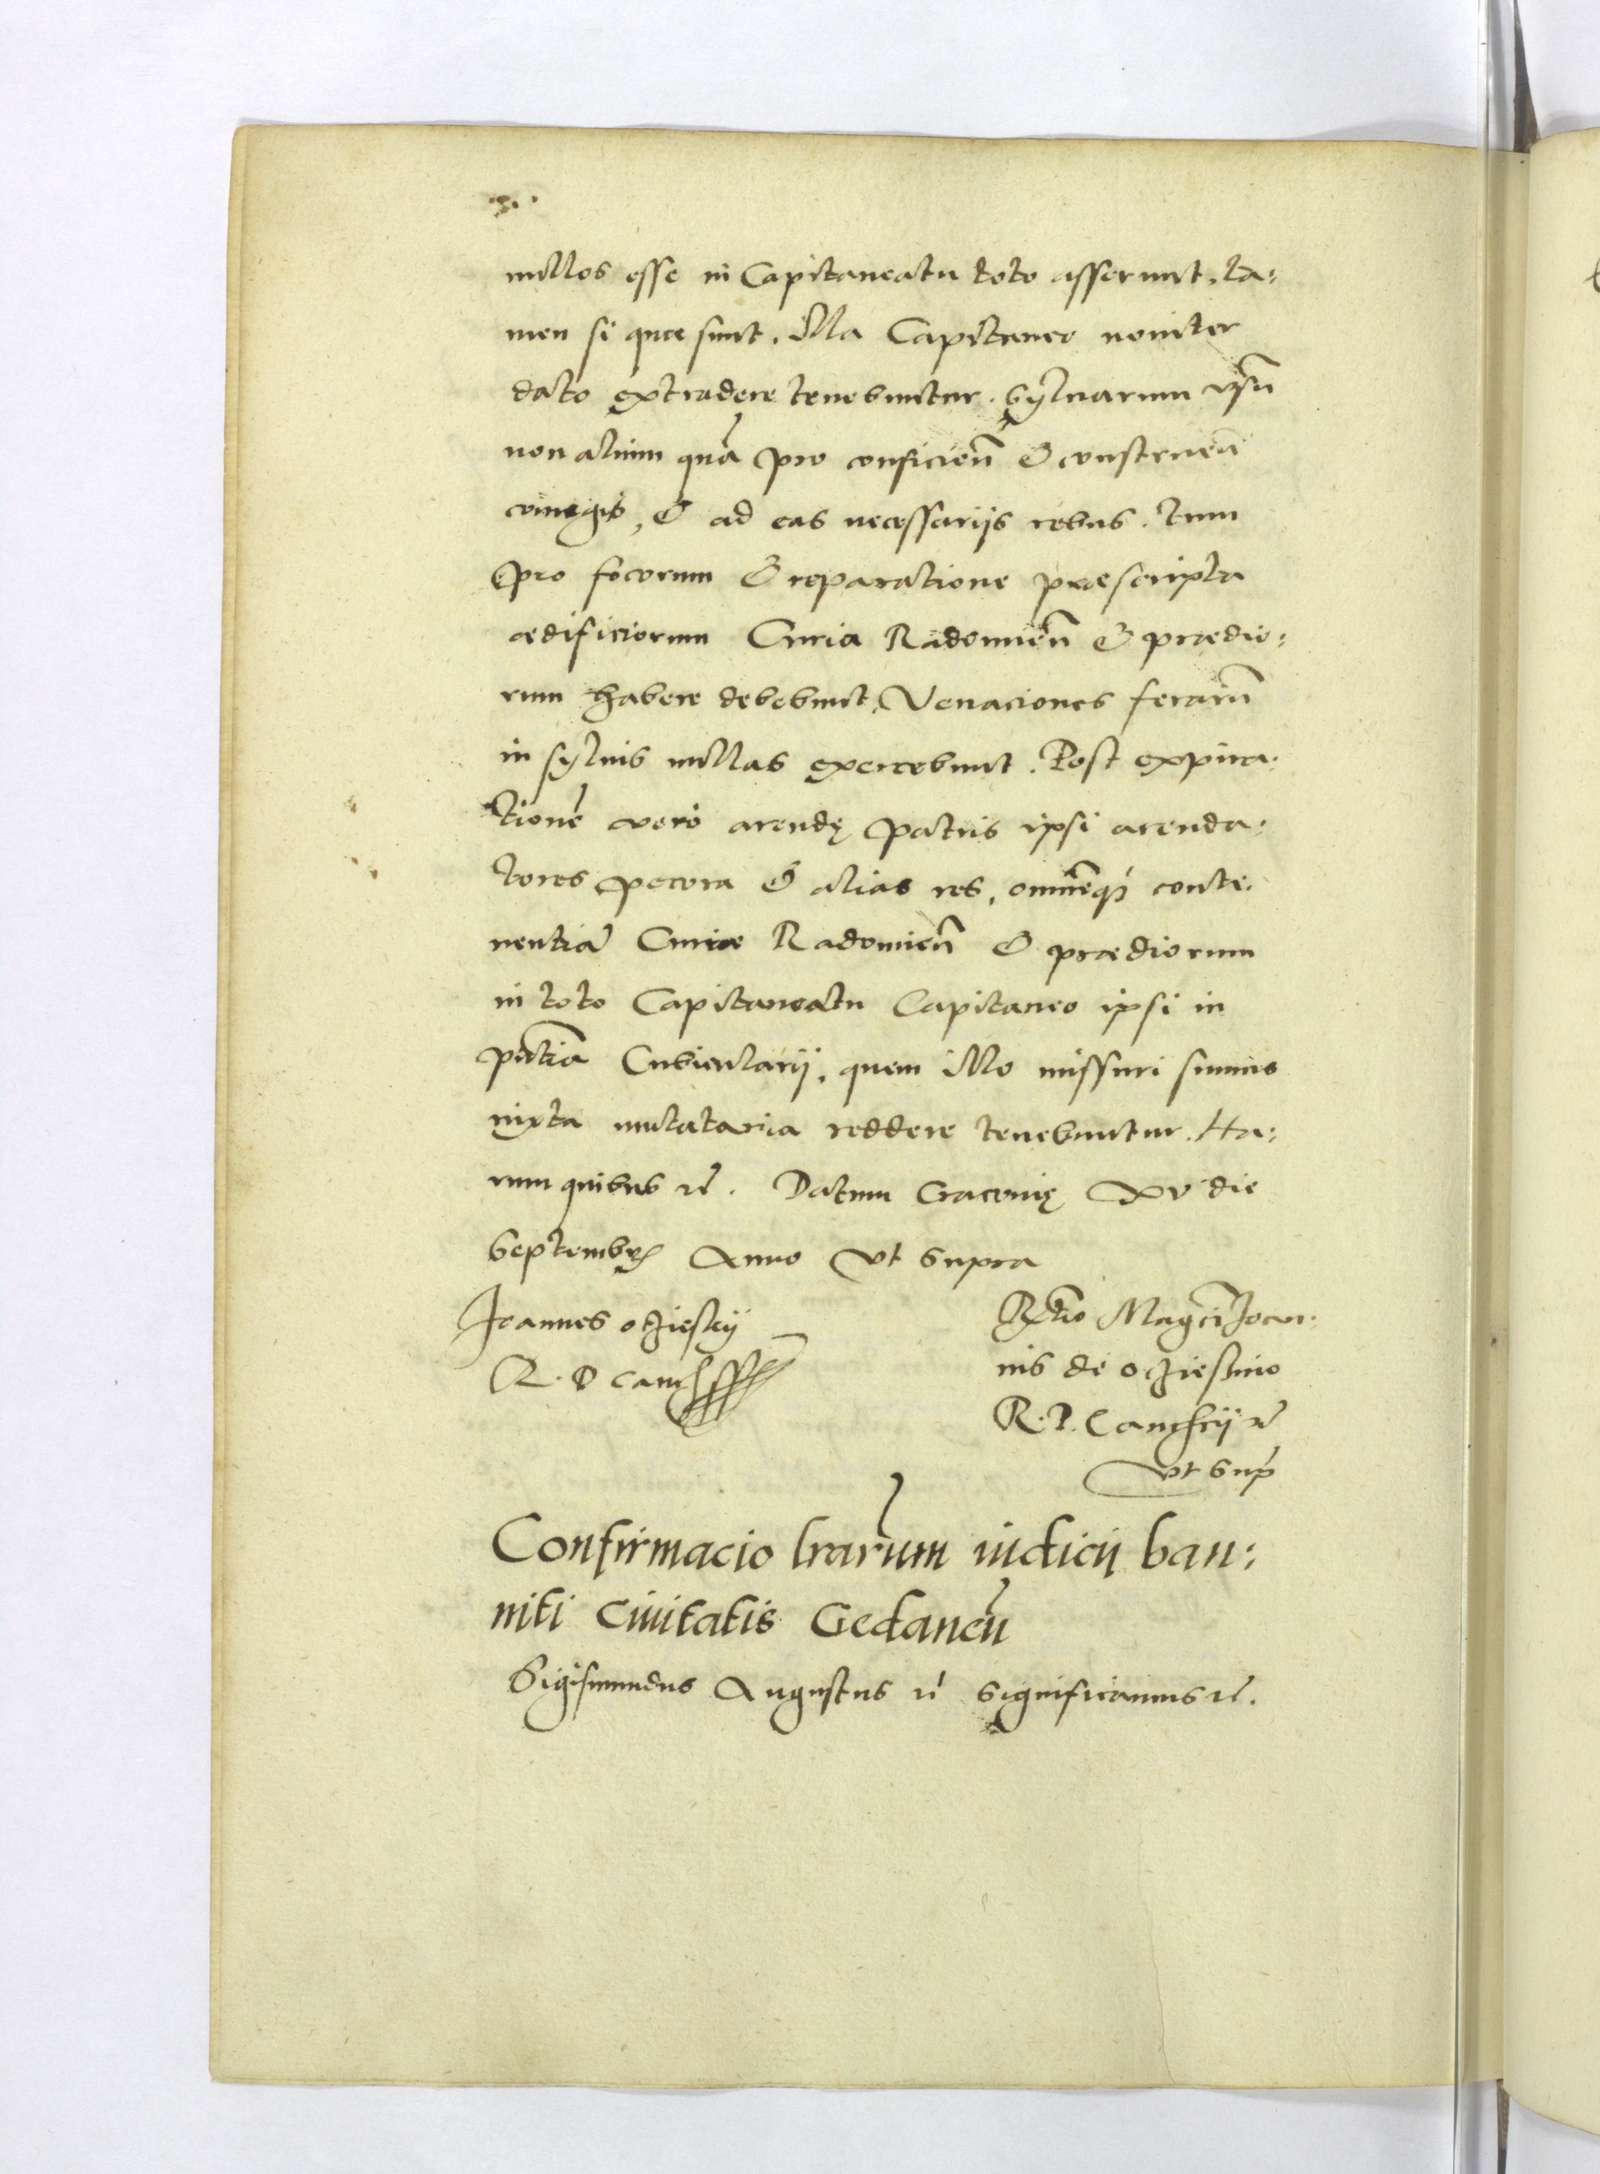 nullos esse in Capitaneatu toto asserunt, ta:
men si qua sunt, illa Capitaneo noviter
dato extradere tenebuntur. Sylvarum usũ
non alium quã pro conficien̄ & construen̄
& ad eas necessarijs rebus. tum
pro focorum & reparatione præscripta
ædificiorum Curiæ Radomien̄ & prædio:
rum habere debebunt, Venaciones ferarũ
in sylvis nullas exercebunt. Post expira:
tionẽ vero arendę pactus ipsi arenda:
tores pecora & alias res, omnẽq; conte:
nentiã Curiæ Radomien̄ & prædiorum
in toto Capitaneatu Capitaneo ipsi in
pñtia Cubicularij, quem illo missuri sumus
iuxta inventaria reddere tenebuntur. Ha:
rum quibus rẽ. Datum Cracovię XV die
Septembrꝭ Anno ut supra
Joannes oczieskij
R. P Cancel
Rtio Magci Joan:
nis de oczieszino
R. P. Cancrij rẽ
ut sup̃
Confirmacio lrarum iudicij ban:
niti Civitatis Gedaneñ
Sigismundus Augustus rẽ significamus rẽ.